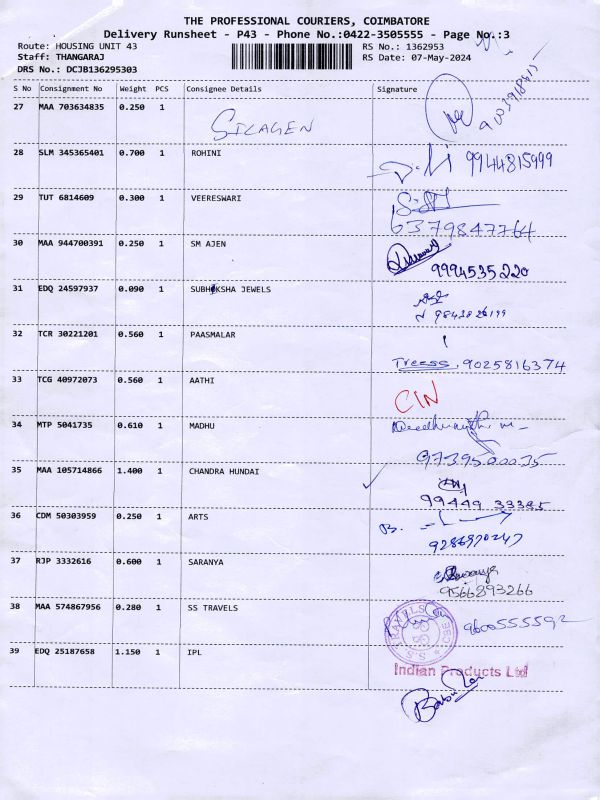 THE PROFESSIONAL COURIERS, COIMBATORE
Delivery Runsheet - P43 - Phone No.:0422-3505555 - Page No.:3
Route: HOUSING UNIT 43
RS No.: 1362953
Staff: THANGARAJ
RS Date: 07-May-2024
DRS No.: DCJB136295303
S No Consignment No Weight PCS Consignee Details Signature
27 MAA 703634835 0.250 1
SILAGEN
28 SLM 345365401 0.700 1 ROHINI 9944815999
29 TUT 6814609 0.300 1 VEERESWARI
6379847764
30 MAA 944700391 0.250 1 SM AJEN
9994535220
31 EDQ 24597937 0.090 1 SUBHIKSHA JEWELS
32 TCR 30221201 0.560 1 PAASMALAR
Treess, 9025816374
33 TCG 40972073 0.560 1 AATHI
CIN
34 MTP 5041735 0.610 1 MADHU
35 MAA 105714866 1.400 1 CHANDRA HUNDAI
36 CDM 50303959 0.250 1 ARTS
B.
37 RJP 3332616 0.600 1 SARANYA
9566893266
38 MAA 574867956 0.280 1 SS TRAVELS
S.S. TRAVELS CBE
9600555592
39 EDQ 25187658 1.150 1 IPL
Indian Products Ltd